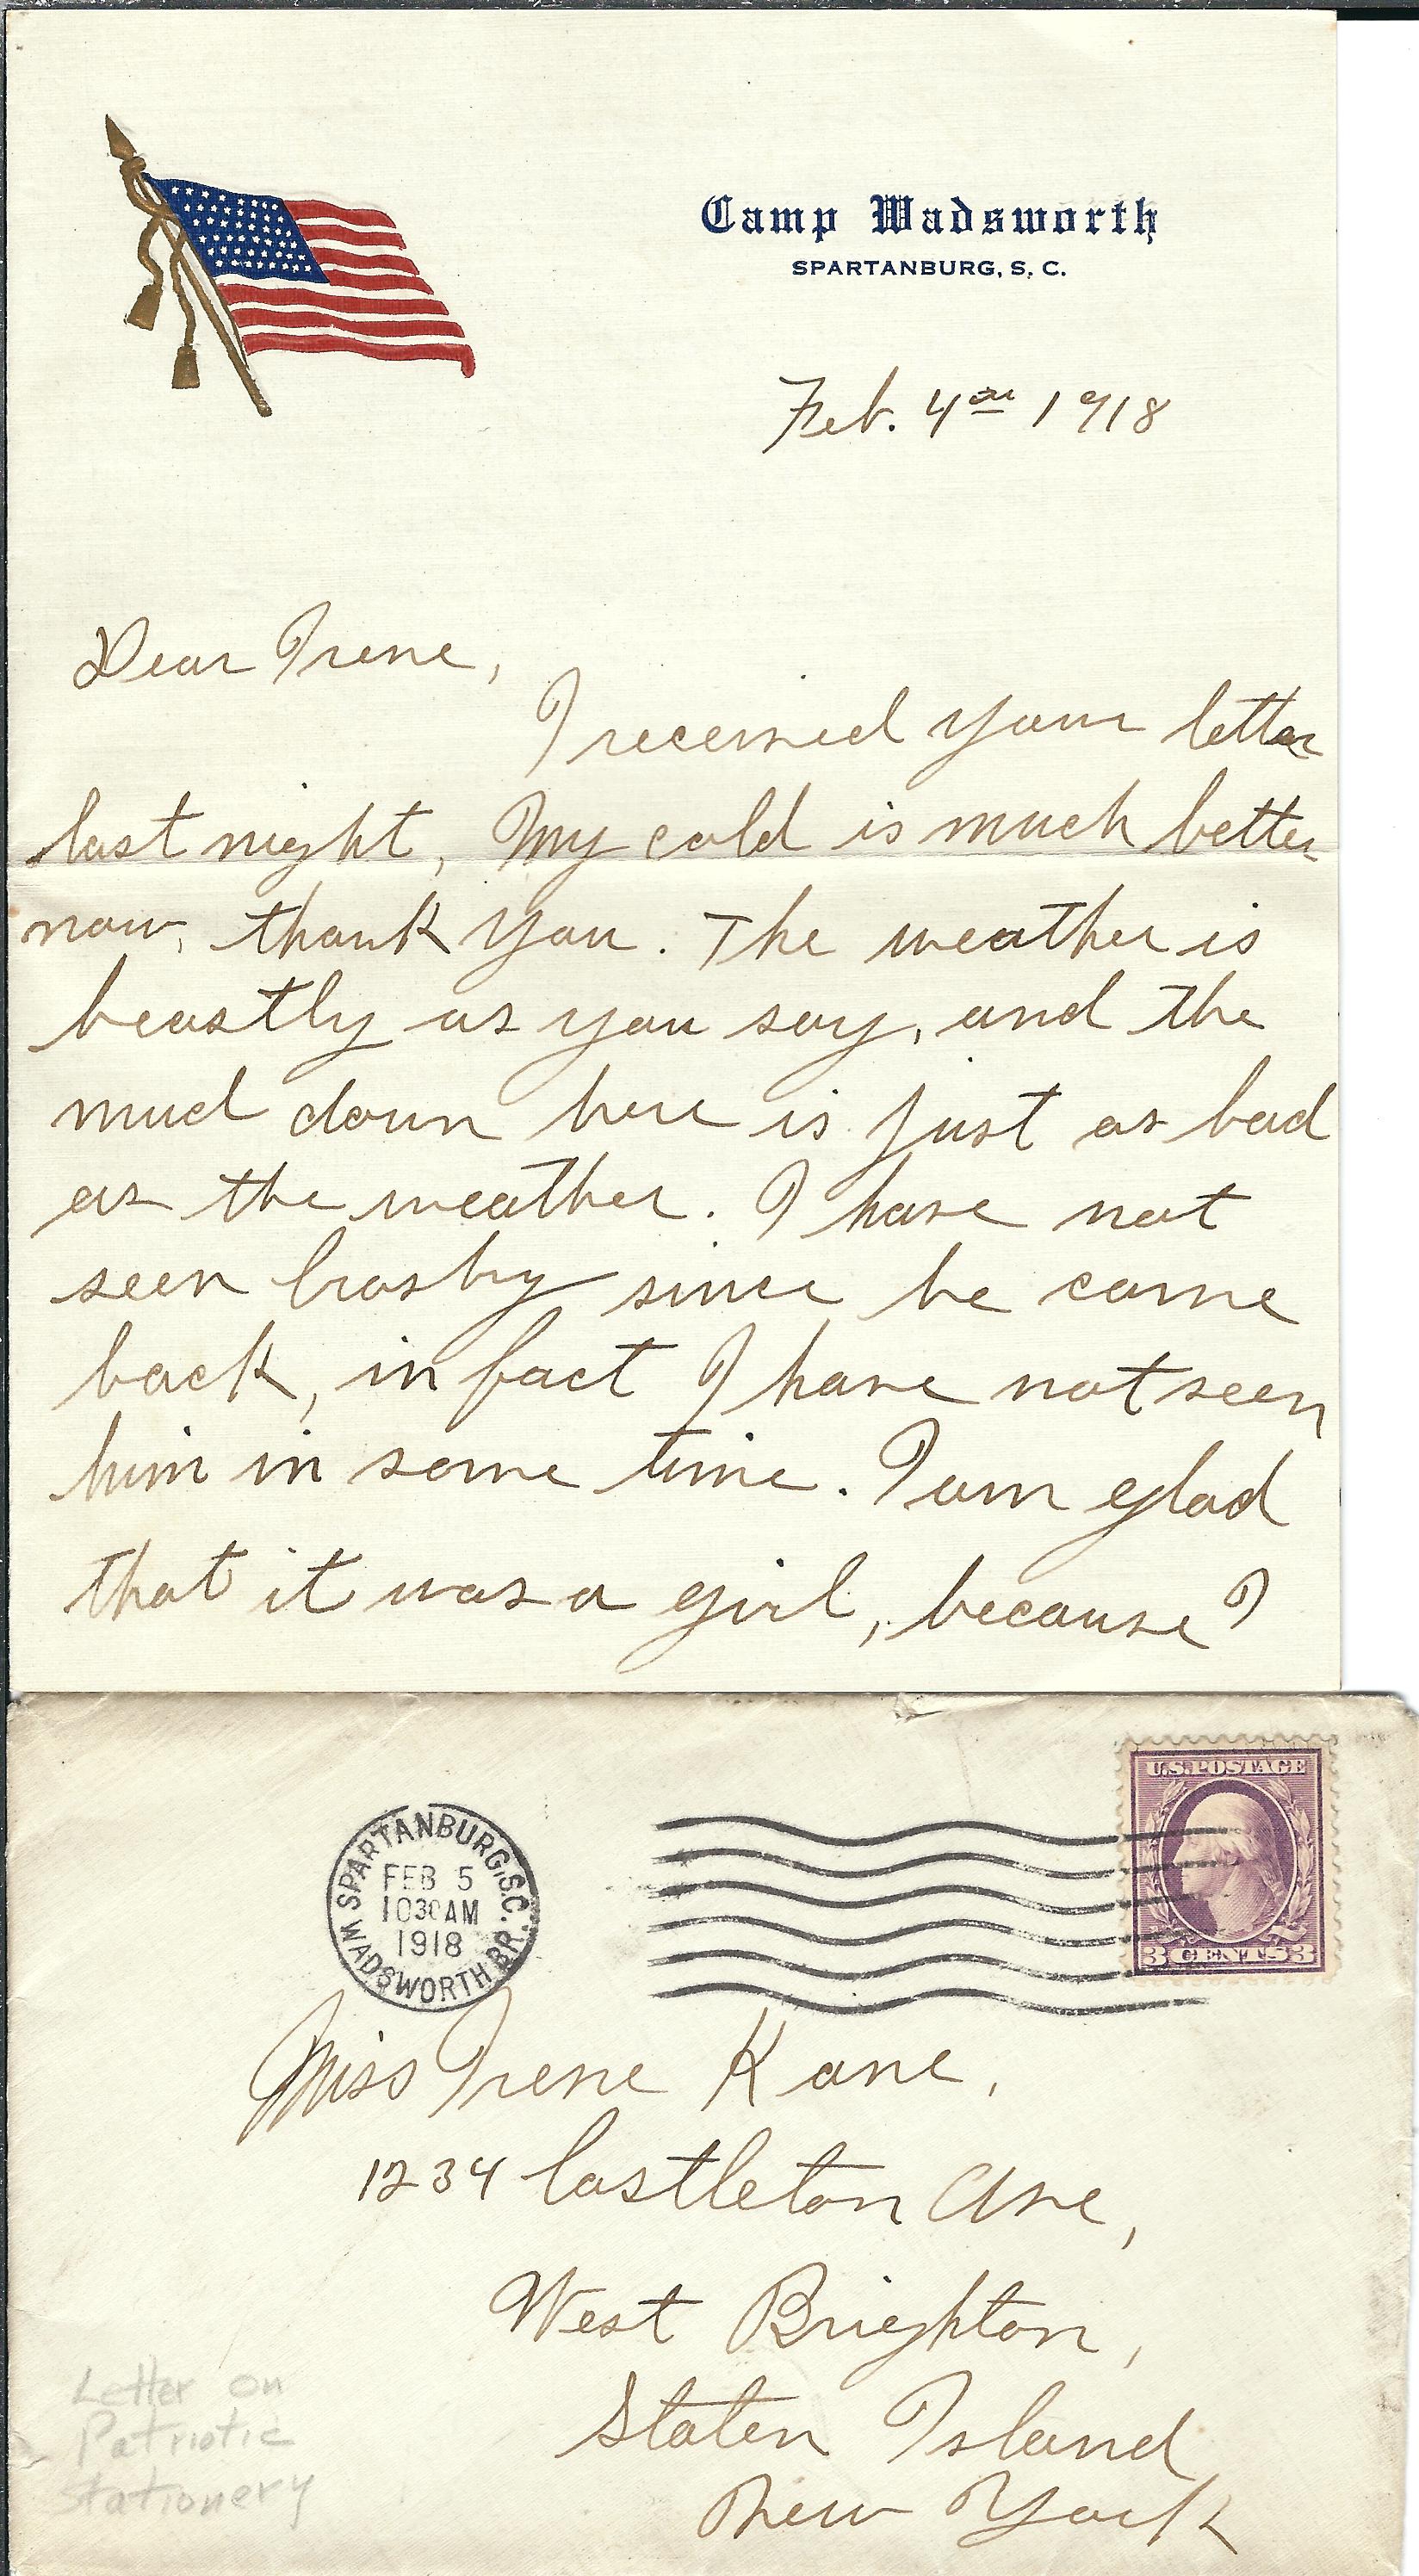 Camp Wadsworth
SPARTANBURG, S. C.
Feb. 4th 1918
Dear Irene,
I received your letter
last night, My cold is much better
now, thank you. The weather is
beastly as you say, and the
mud down here is just as bad
as the weather. I have not
seen Crosby since he came
back, in fact I have not seen
him in some time. I am glad
that it was a girl, because I
U.S. POSTAGE
3 CENTS 3
SPARTANBURG, S.C.
FEB 5
1030AM
1918
WADSWORTH BR.
Miss Irene Kane,
1234 Castleton Ave,
West Brighton,
Staten Island
New York
Letter on
Patriotic
Stationery